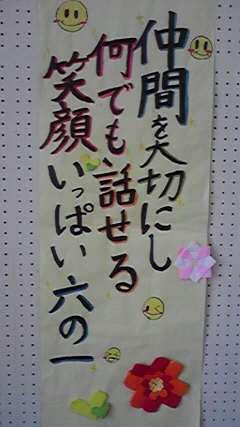 仲間を大切にし
何でも話せる
笑顔いっぱい六の一